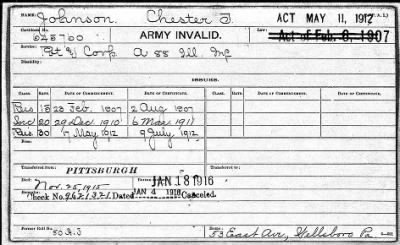 NAME: Johnson, Chester T. ACT MAY 11, 1912
Certificate No. 648700 ARMY INVALID. LAW: Act of Feb. 6, 1907
Service: Pt & Corp. A 88 Ill. Inf.
ISSUES.
CLASS. RATE. DATE OF COMMENCEMENT. DATE OF CERTIFICATE. CLASS. RATE. DATE OF COMMENCEMENT. DATE OF CERTIFICATE.
Reis 15 23 Feb. 1907 2 Aug 1907
Inc 20 29 Dec 1910 6 Mar. 1911
Reis 30 17 May 1912 9 July, 1912
Transferred from PITTSBURGH Transferred to
Died: Nov. 25, 1915 JAN 18 1916
Check No. 9621321 Dated JAN 4 1916 Canceled.
Former Roll No. Home Address:
53 East Ave, Wellsboro Pa